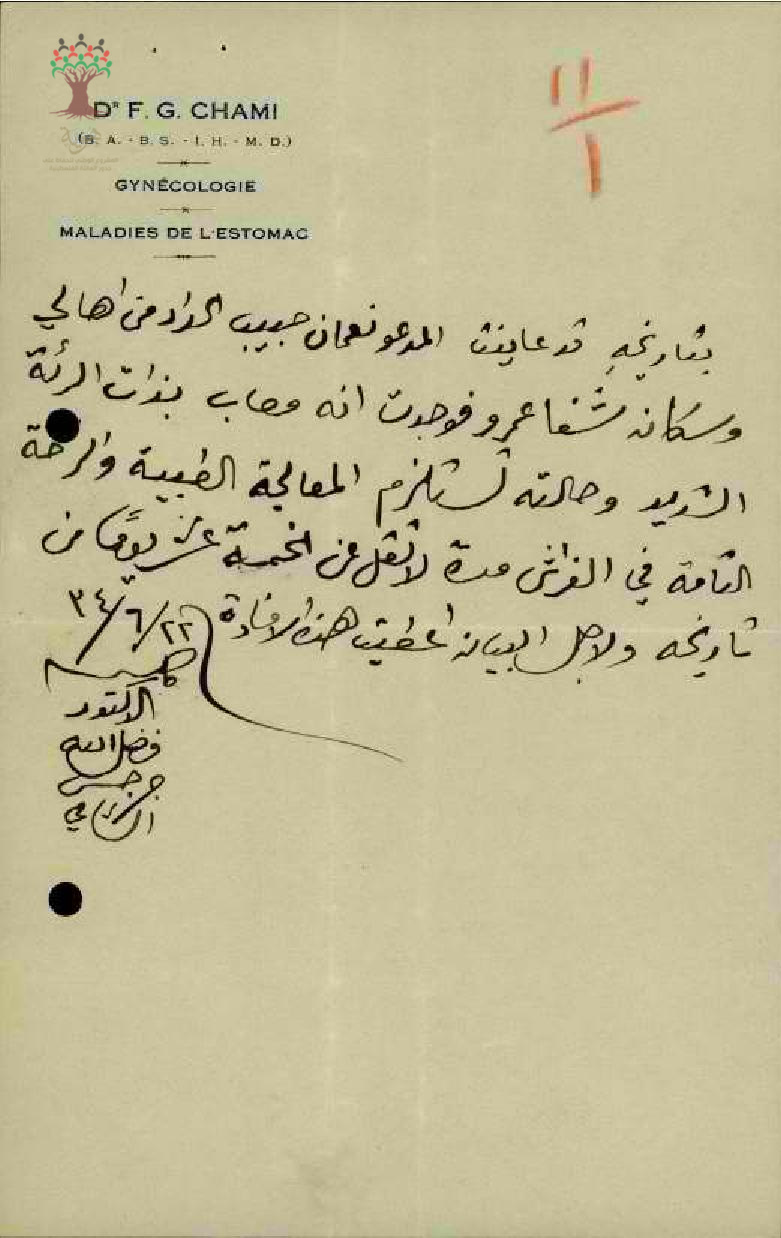 Dʳ F. G. CHAMI
(B. A. - B. S. - I. H. - M. D.)
GYNÉCOLOGIE
MALADIES DE L'ESTOMAC
١١/١
بتاريخه قد عاينت المدعو نعمان حبيب الحداد من اهالي
وسكان شفاعمرو فوجدت انه مصاب بذات الرئة
الشديد وحالته تستلزم المعالجة الطبية والراحة
التامة في الفراش مدة لا تقل عن الخمسة عشر يومًا من
تاريخه ولاجل البيان اعطيت هذه الافادة ٢٢/٦/٣٤
الدكتور
فضل الله
جرجس